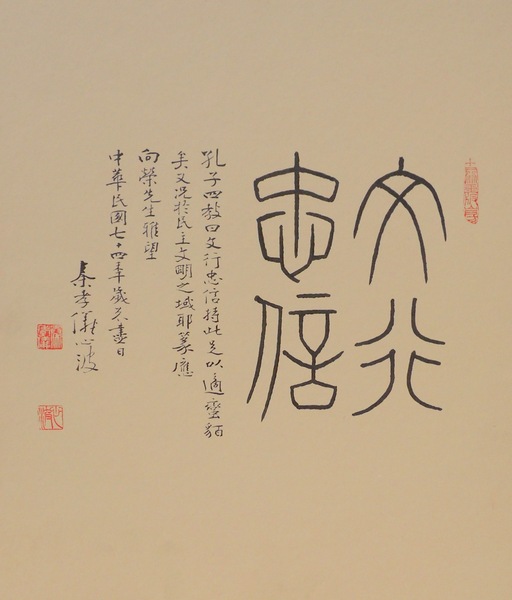 文行
忠信
孔子四教曰文行忠信持此足以適蠻貊
矣又況於民主文明之域耶篆應
向榮先生雅望
中華民國七十四年歲不盡日
秦孝儀心波